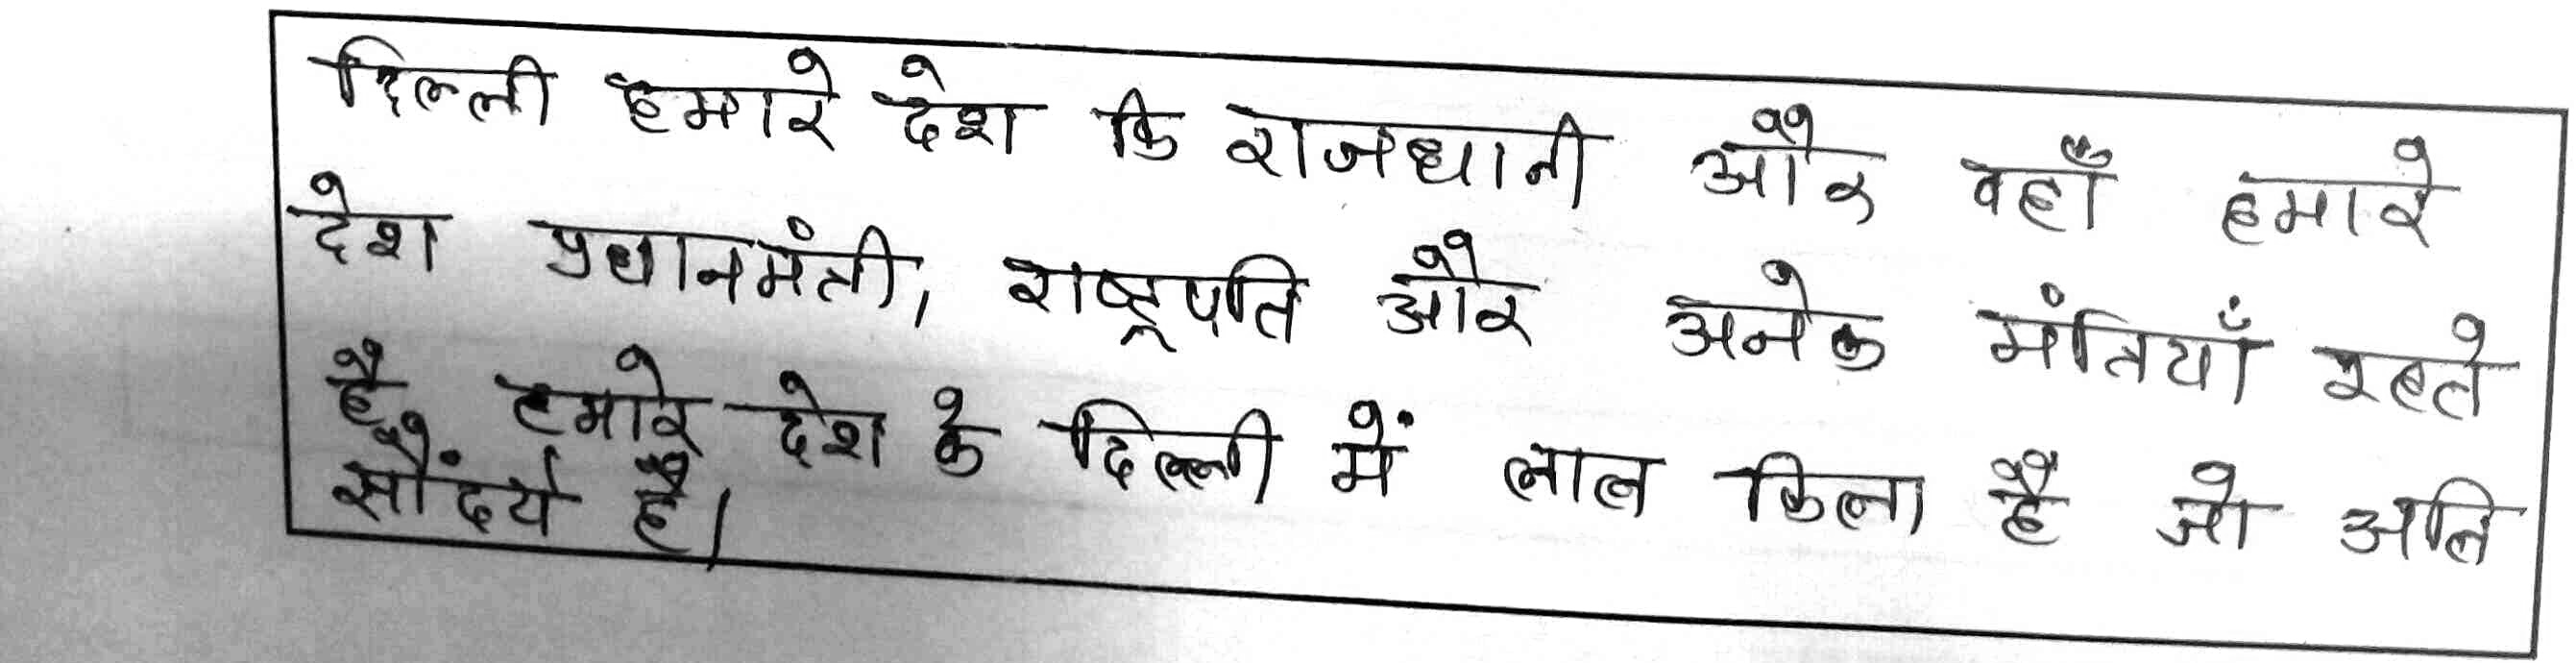 दिल्ली हमारे देश कि राजधानी और वहाँ हमारे
देश प्रधानमंती, राष्ट्रपति और अनेक मंतियाँ रहते
है, हमारे देश के दिल्ली में लाल किला है जो अति
सौंदर्य है।